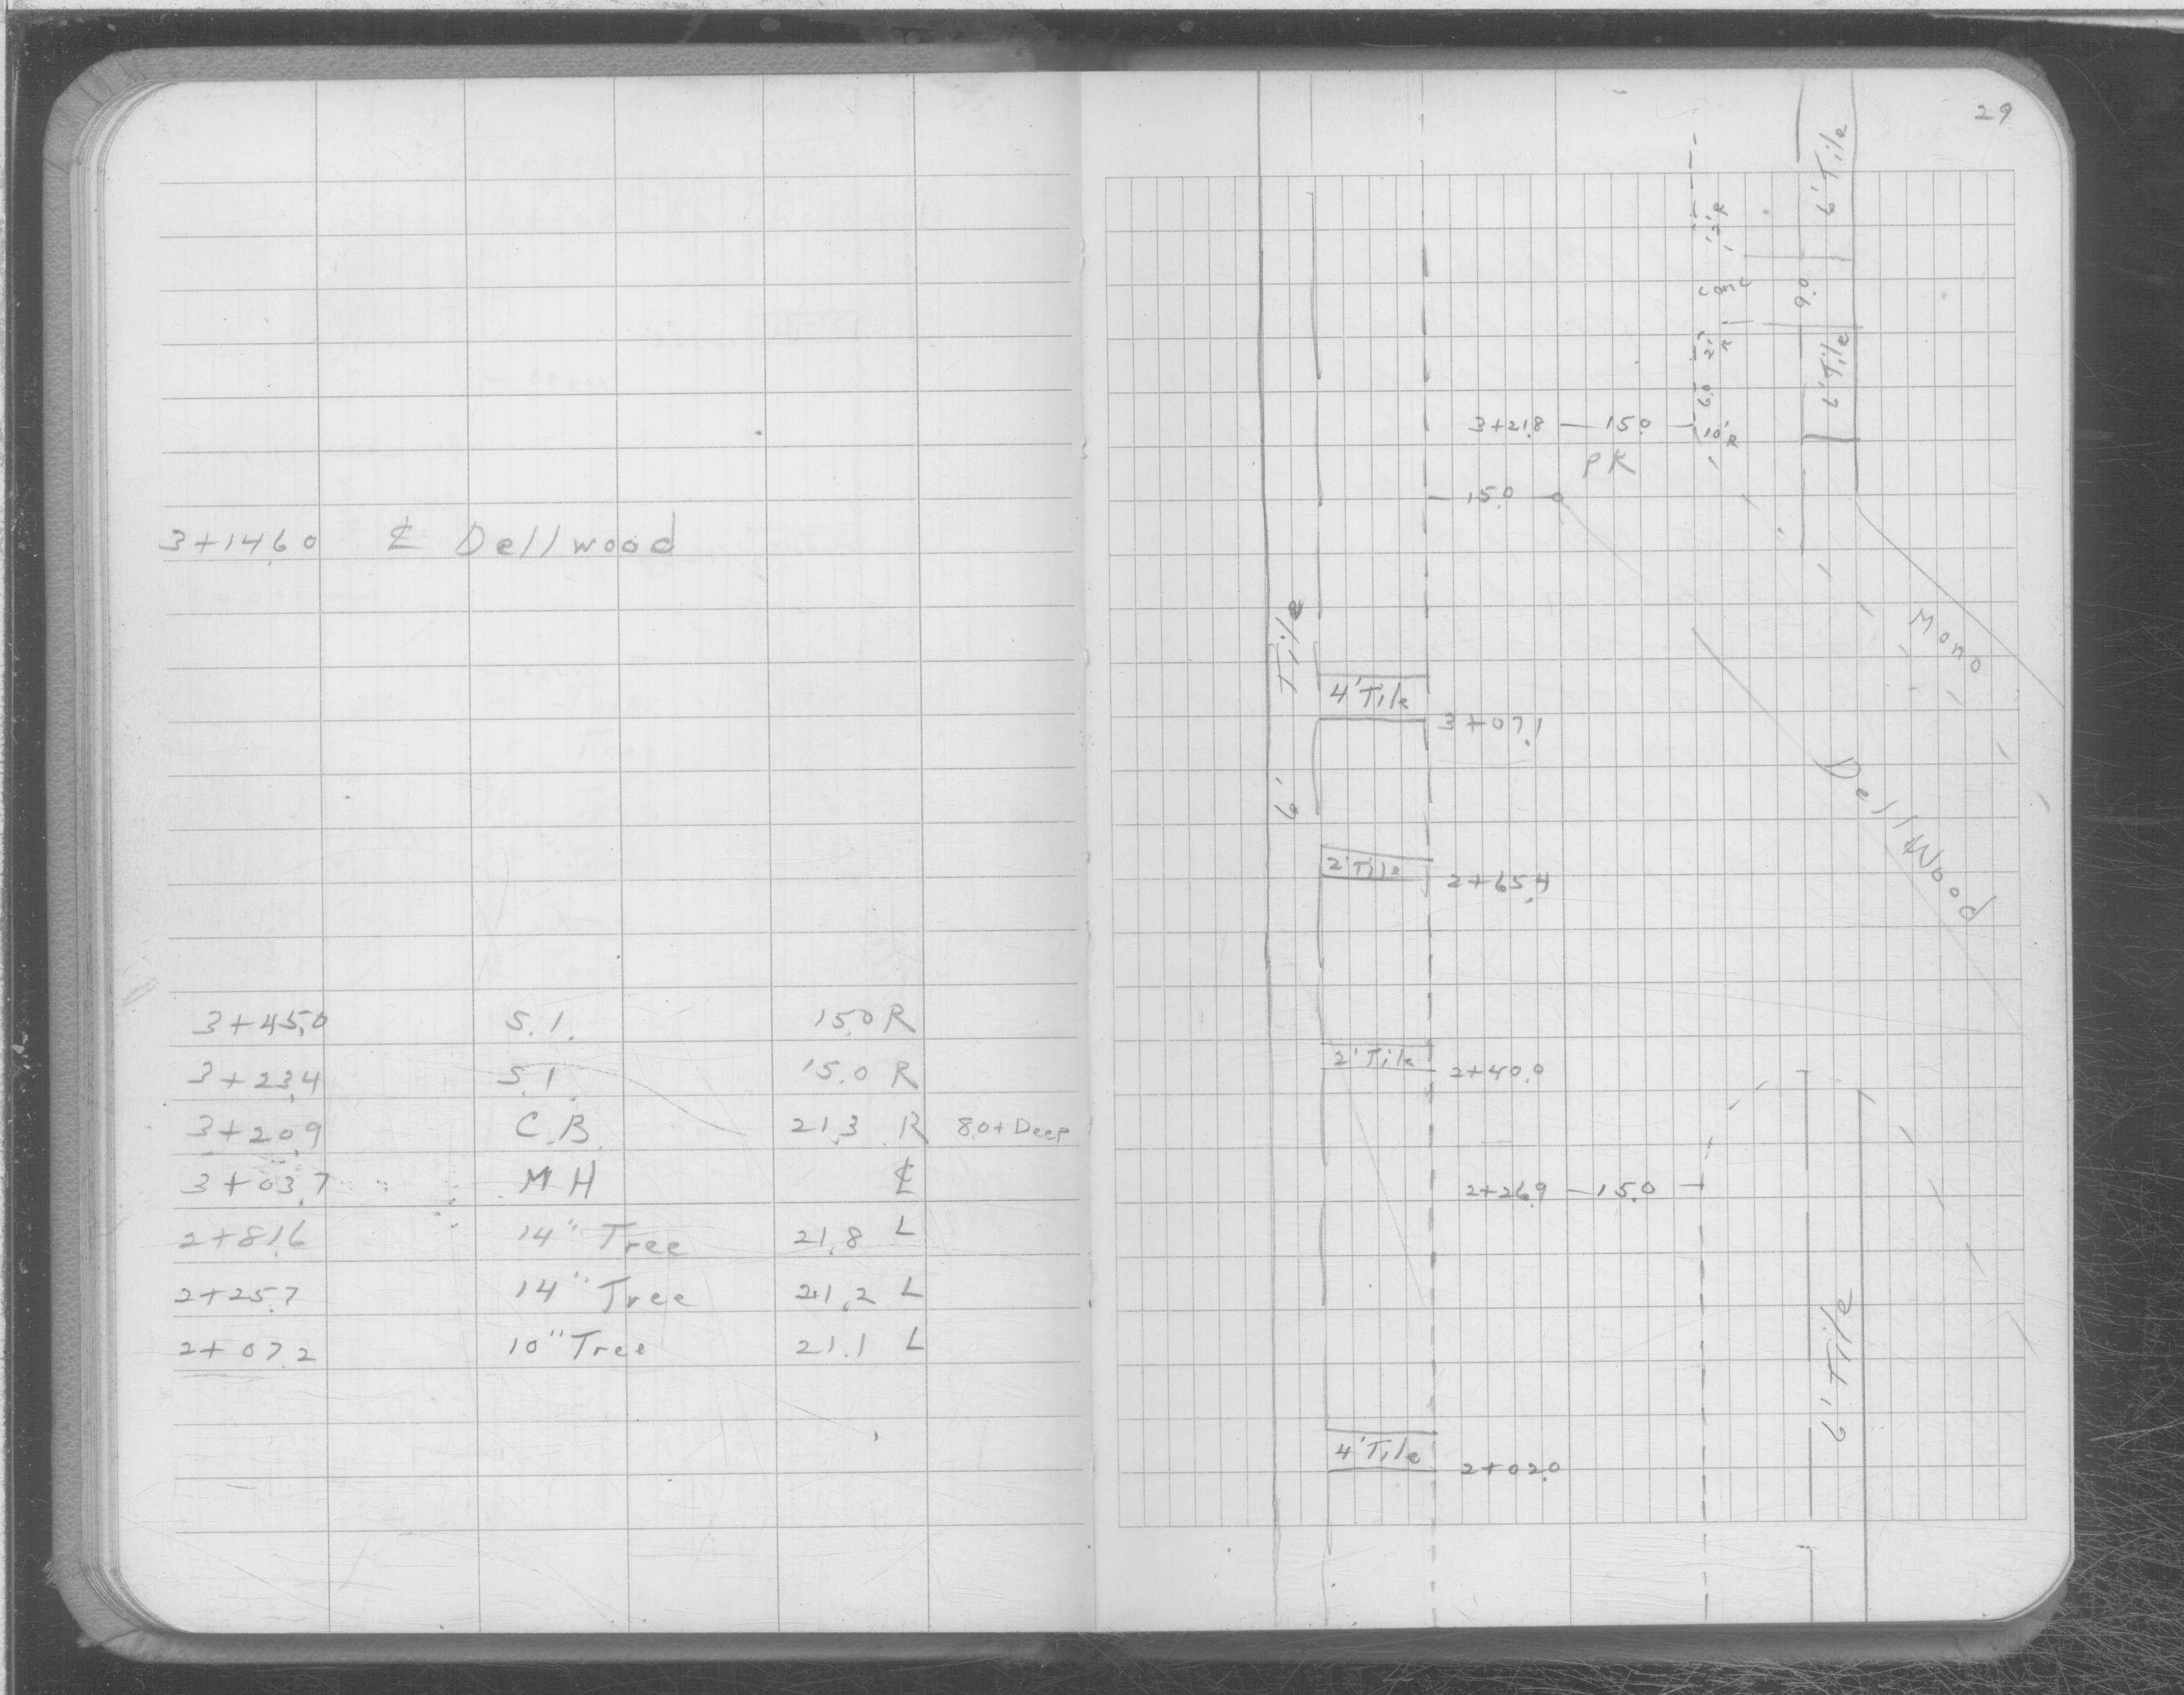 29
3+14.60 ℄ Dellwood
3+45.0 S.I. 15.0 R
3+23.4 S.I. 15.0 R
3+20.9 C.B. 21.3 R 8.0+ Deep
3+03.7 MH ℄
2+81.6 14" Tree 21.8 L
2+25.7 14" Tree 21.2 L
2+07.2 10" Tree 21.1 L
6' Tile
12'R
9.0
6' Tile
6.0
3+21.8 — 15.0
10'R
PK
15.0
6' Tile
Mono
4' Tile
3+07.1
Dellwood
2' Tile 2+65.4
2' Tile 2+40.0
2+26.9 — 15.0
6' Tile
4' Tile 2+02.0